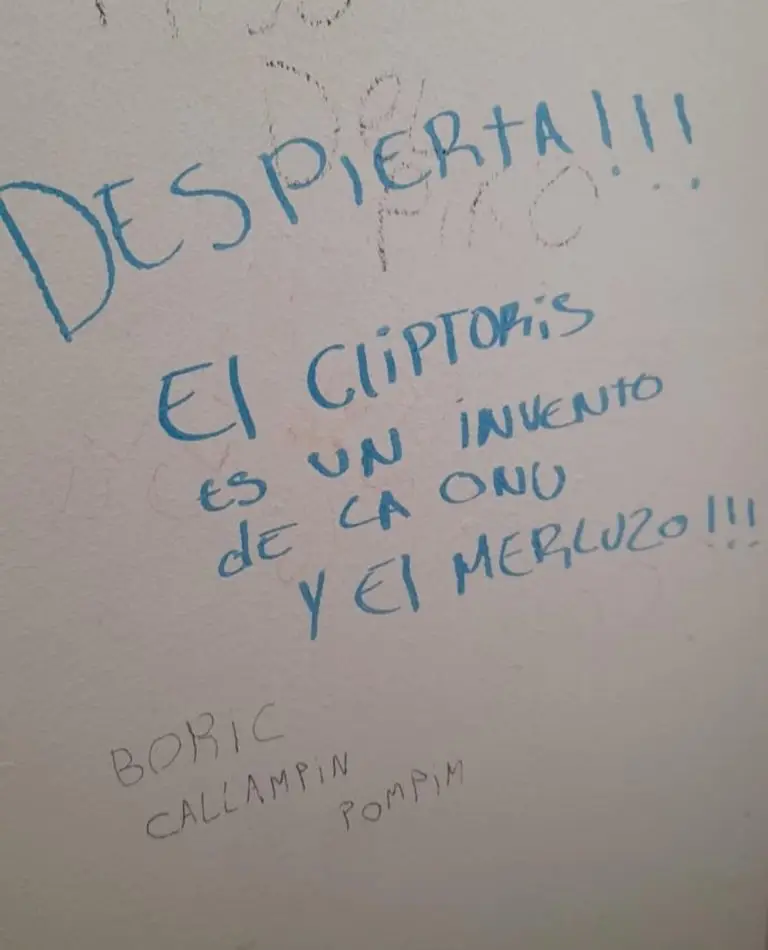 DESPIERTA!!!
El CliPTORiS
ES UN iNVENTO
dE LA ONU
Y El MERLUZO!!!
BORIC
CALLAMPiN
POMPIM